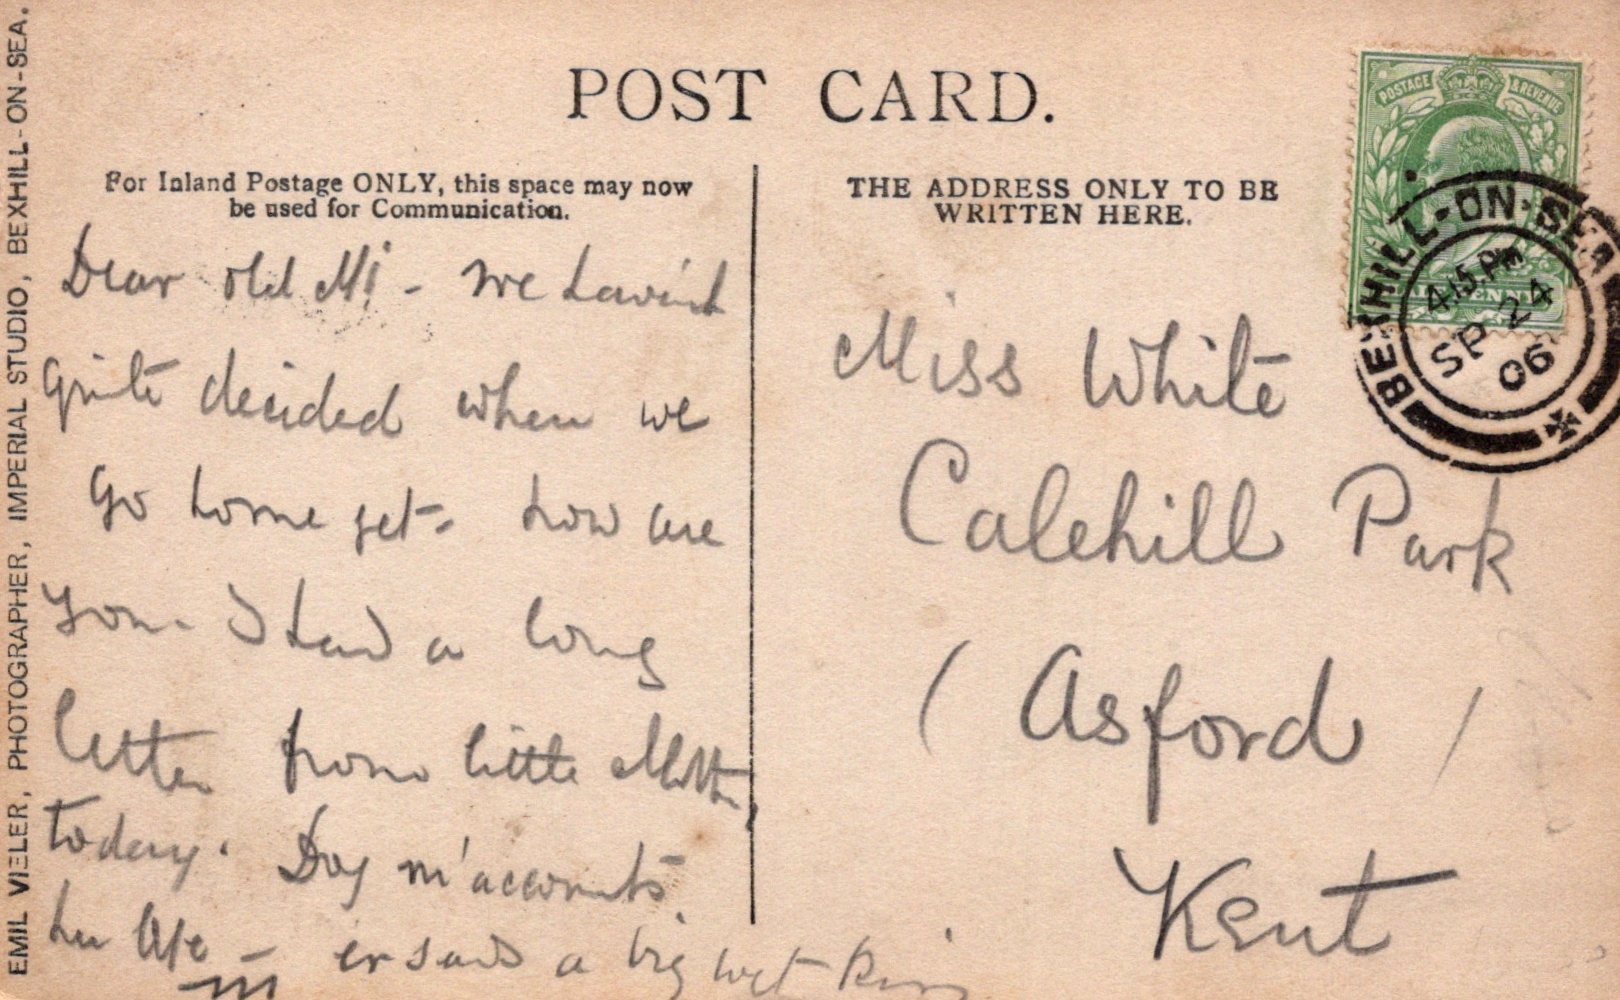 POST CARD.
For Inland Postage ONLY, this space may now
be used for Communication.
THE ADDRESS ONLY TO BE
WRITTEN HERE.
Dear old Mi - we havint
quite decided when we
go home yet - how are
you - I had a long
letter from little Mother
today. Dog m' accounts
her Ape - er sends a big wet
Miss White
Calehill Park
(Asford)
Kent
POSTAGE & REVENUE
BEXHILL-ON-SEA
4.15 PM
SP 24
06
EMIL VIELER, PHOTOGRAPHER, IMPERIAL STUDIO, BEXHILL-ON-SEA.